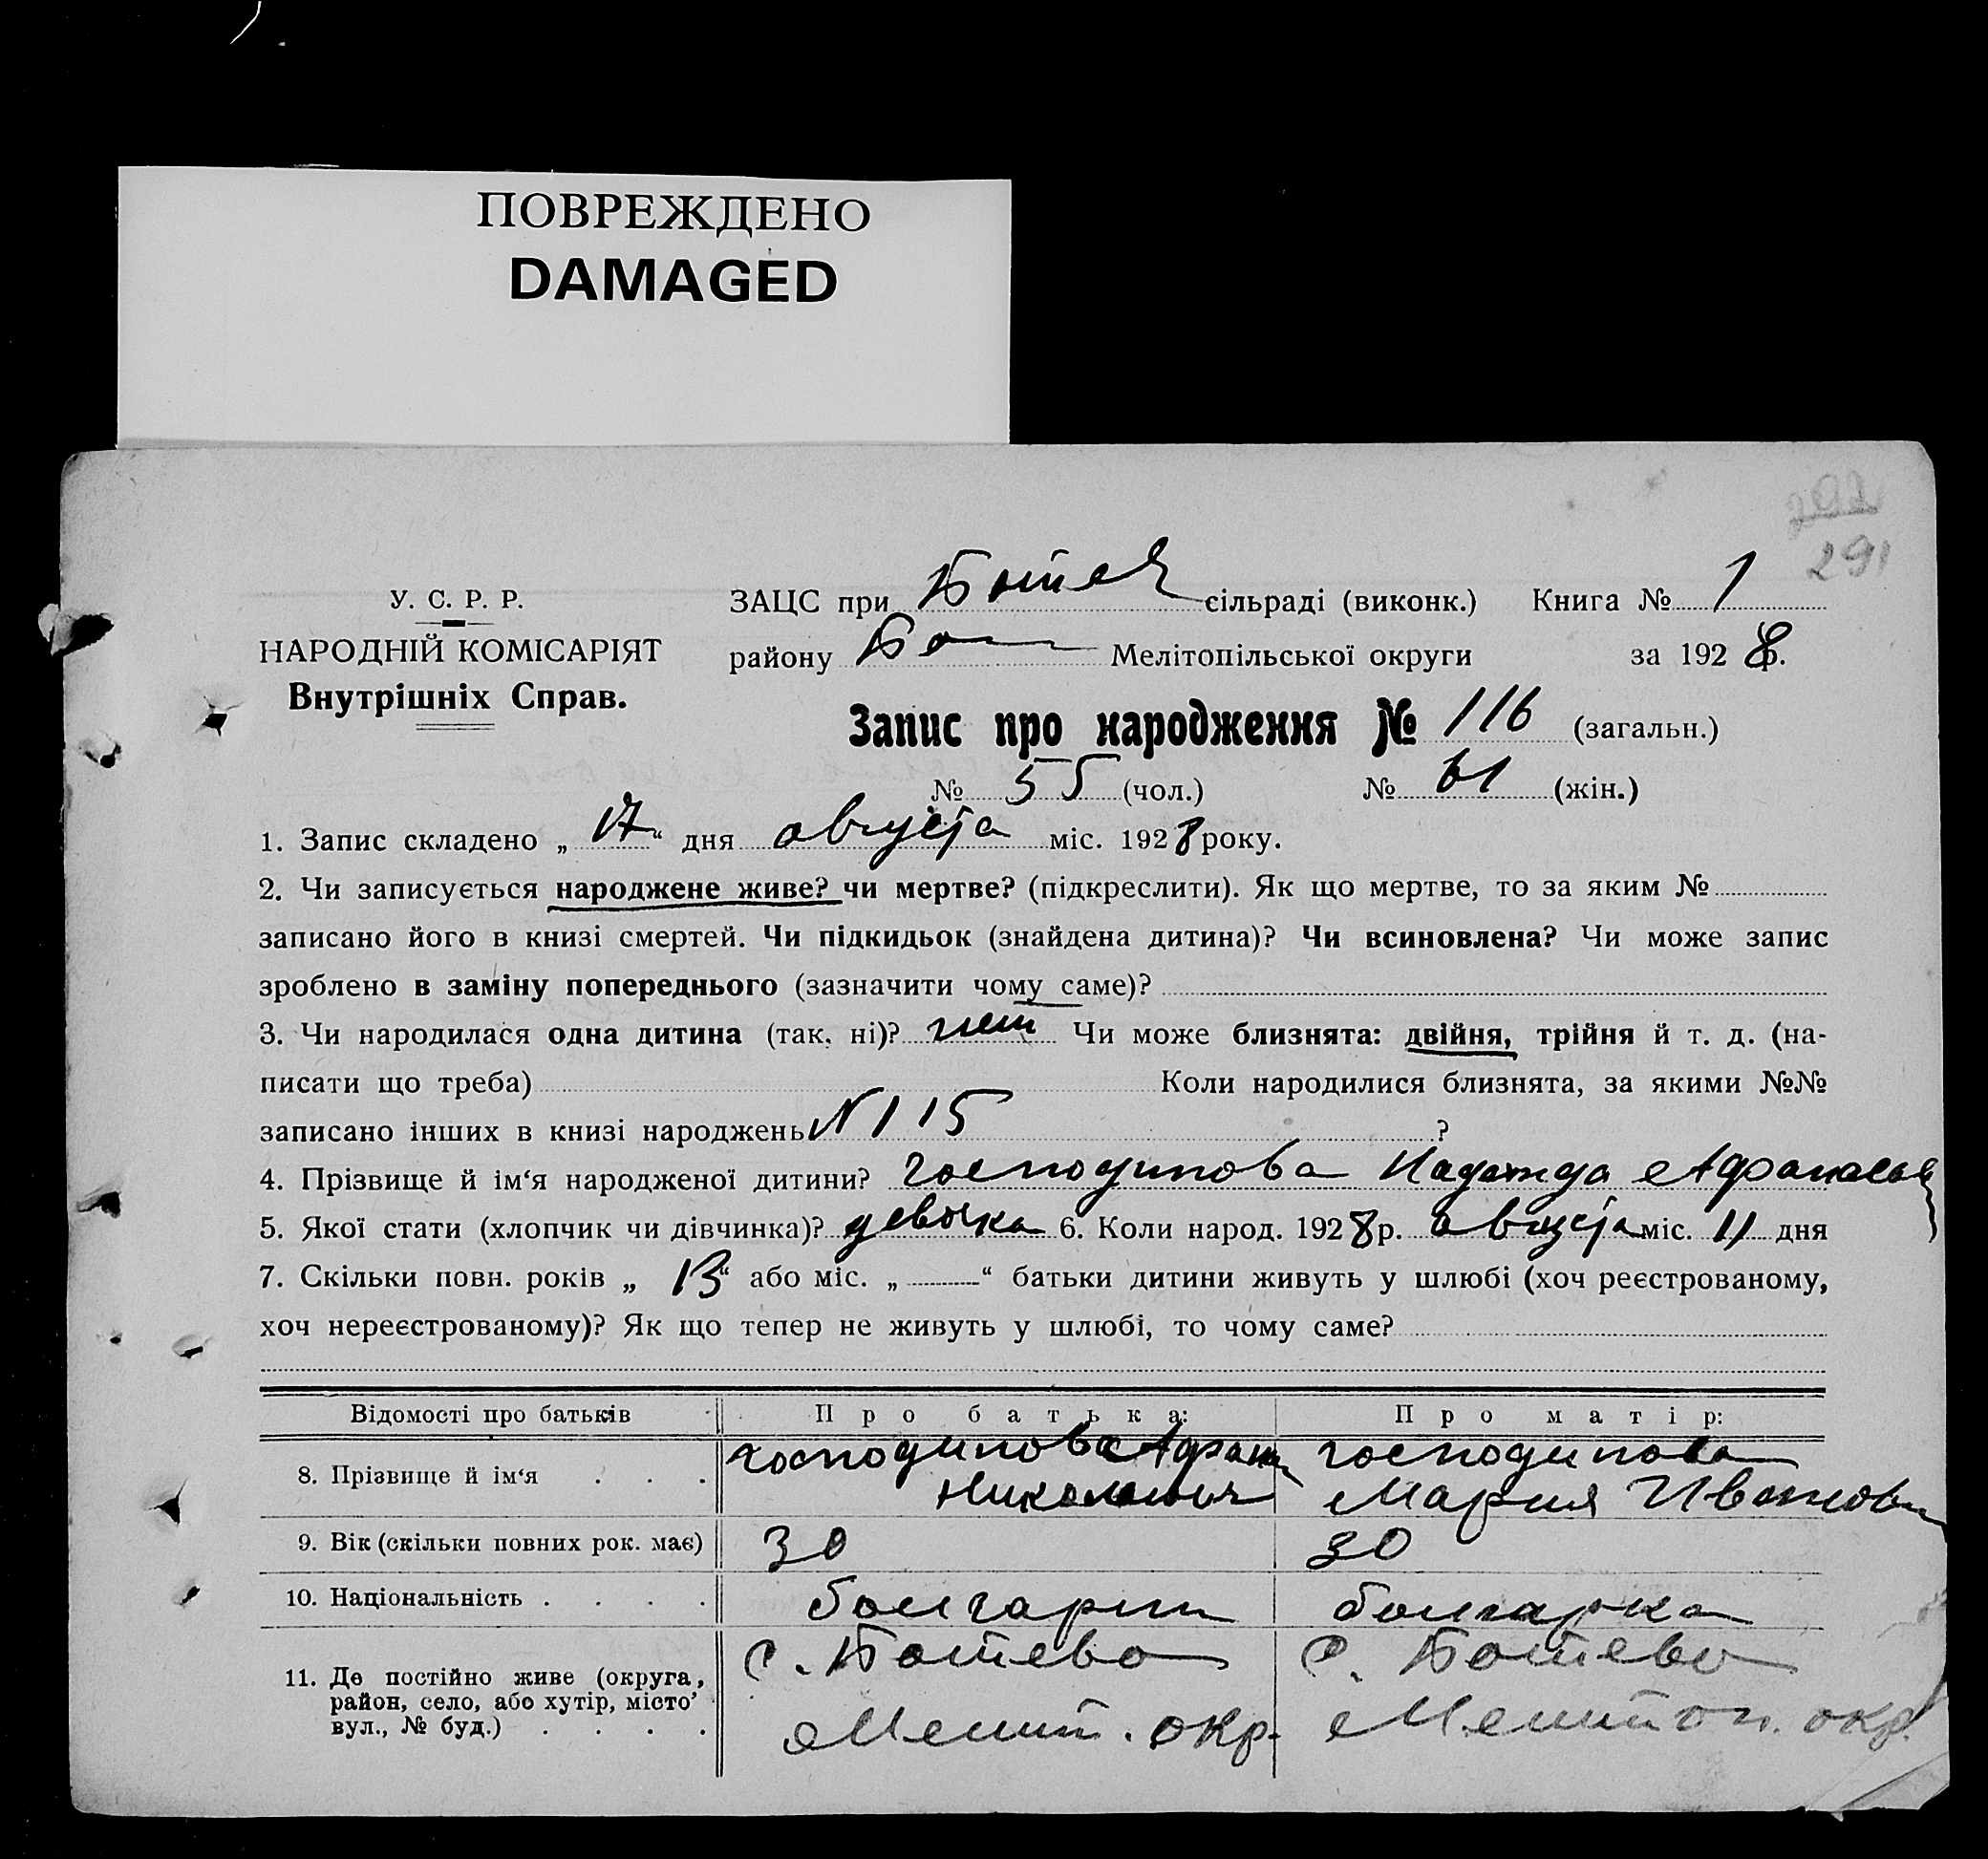 ПОВРЕЖДЕНО
DAMAGED
291
У. С. Р. Р.
НАРОДНІЙ КОМІСАРІЯТ
Внутрішніх Справ.
ЗАЦС при Ботев сільраді (виконк.) Книга № 1
району Бот Мелітопільської округи за 1928 р.
Запис про народження № 116 (загальн.)
№ 55 (чол.) № 61 (жін.)
1. Запис складено „ 17 “ дня августа міс. 1928 року.
2. Чи записується народжене живе? чи мертве? (підкреслити). Як що мертве, то за яким №
записано його в книзі смертей. Чи підкидьок (знайдена дитина)? Чи всиновлена? Чи може запис
зроблено в заміну попереднього (зазначити чому саме)?
3. Чи народилася одна дитина (так, ні)? нет Чи може близнята: двійня, трійня й т. д. (на-
писати що треба) Коли народилися близнята, за якими №№
записано інших в книзі народжень N 115 ?
4. Прізвище й ім‘я народженої дитини? Господинова Надежда Афанасьев
5. Якої стати (хлопчик чи дівчинка)? девочка 6. Коли народ. 1928 р. августа міс. 11 дня
7. Скільки повн. років „ 13 “ або міс. „ “ батьки дитини живуть у шлюбі (хоч реєстрованому,
хоч нереєстрованому)? Як що тепер не живуть у шлюбі, то чому саме?
Відомості про батьків Про батька: Про матір:
8. Прізвище й ім‘я . . . Господинов Афан Господинова
Николаевич Мария Иванов
9. Вік (скільки повних рок. має) 30 30
10. Національність . . . . болгарин болгарка
11. Де постійно живе (округа, район, село, або хутір, місто’ вул., № буд.) . . . . с. Ботево с. Ботево
Мелит. окр. Мелитоп. окр.